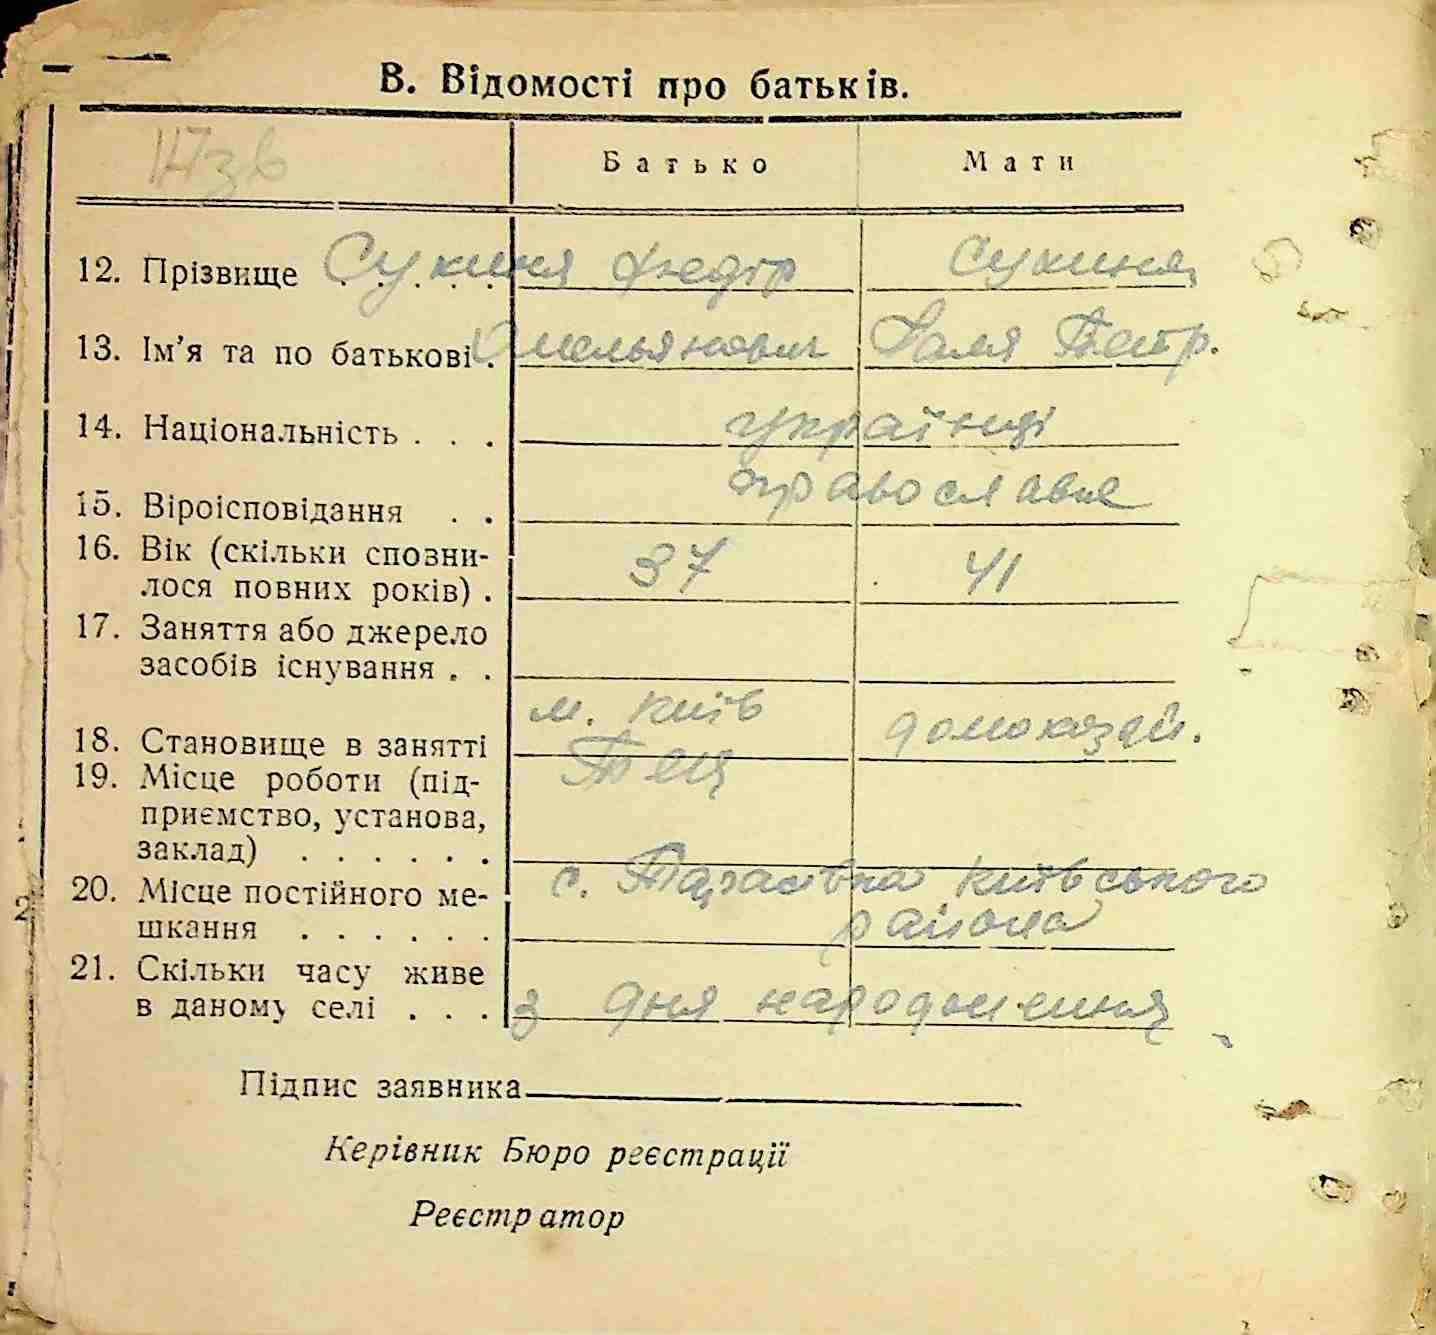 В. Відомості про батьків.
117 зв
Батько Мати
12. Прізвище Сукиня Федір Сукиня
13. Ім’я та по батькові Омельянович Галя Петр.
14. Національність . . . українці
15. Віроісповідання . . православне
16. Вік (скільки спозни-
лося повних років) . 37 41
17. Заняття або джерело
засобів існування . .
18. Становище в занятті м. Київ домохазяй.
19. Місце роботи (під- Тец
приємство, установа,
заклад) . . . . . .
20. Місце постійного ме- с. Київського
шкання . . . . . . района
21. Скільки часу живе
в даному селі . . . з дня народження
Підпис заявника
Керівник Бюро реєстрації
Реєстратор